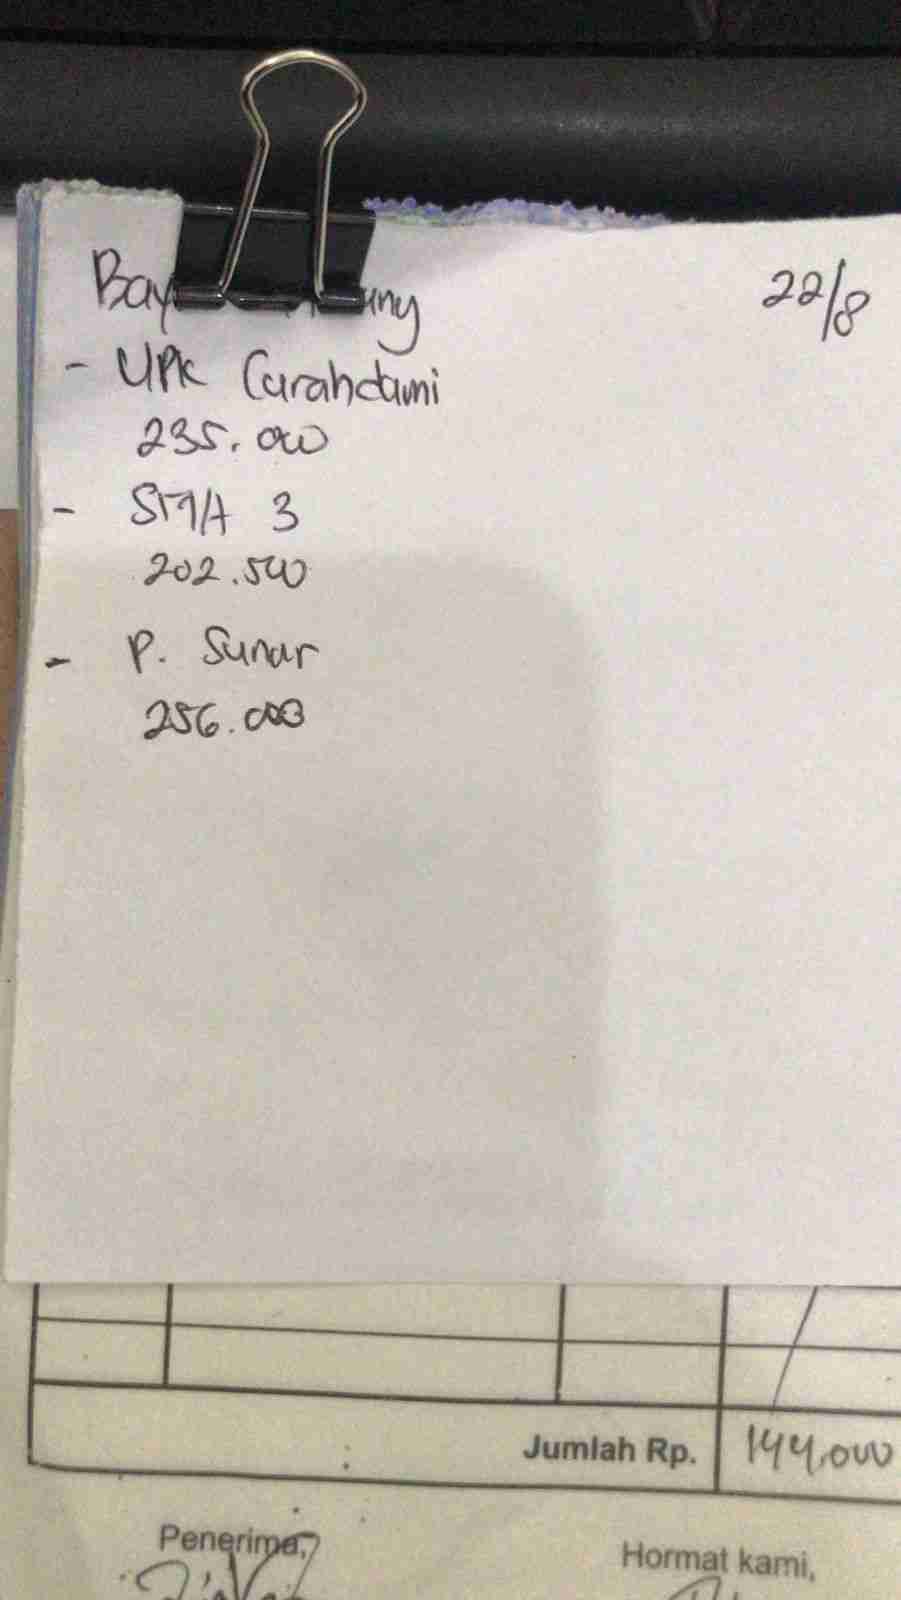 22/8
- UPK Curahdami
235.000
- SMA 3
202.500
- P. Sunar
256.000
Jumlah Rp. 144.000
Penerima,
Hormat kami,